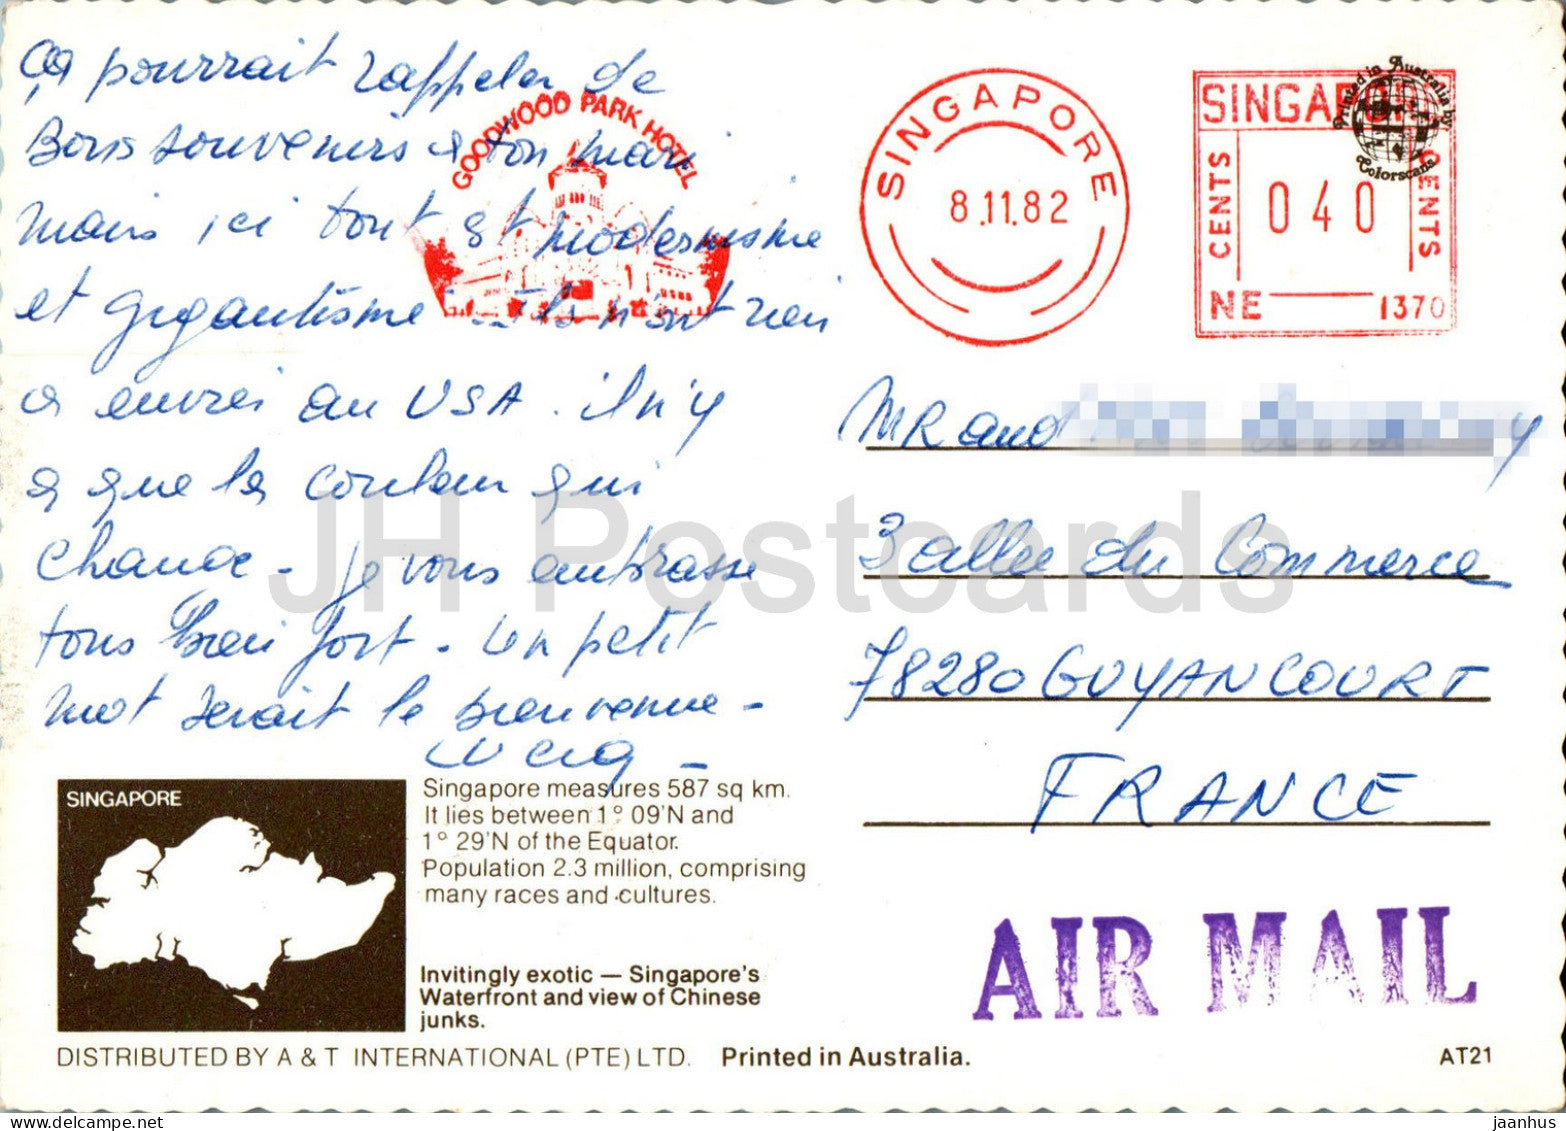 Ça pourrait rappeler de
Bons souvenirs a ton mari
mais ici tout est modernisme
et gigantisme - ils n'ont rien
a envier au USA. il n'y
a que la couleur qui
change - Je vous embrasse
tous bien fort - un petit
mot serait le bienvenue -
GOODWOOD PARK HOTEL
SINGAPORE
8.11.82
SINGAPORE
CENTS 040 CENTS
NE 1370
Printed in Australia by:
Colorscans
MR and
3 allée du Commerce
78280 GUYANCOURT
FRANCE
JH Postcards
SINGAPORE
Singapore measures 587 sq km.
It lies between 1° 09'N and
1° 29'N of the Equator.
Population 2.3 million, comprising
many races and cultures.
Invitingly exotic — Singapore's
Waterfront and view of Chinese
junks.
AIR MAIL
DISTRIBUTED BY A & T INTERNATIONAL (PTE) LTD. Printed in Australia.
AT21
jaanhus